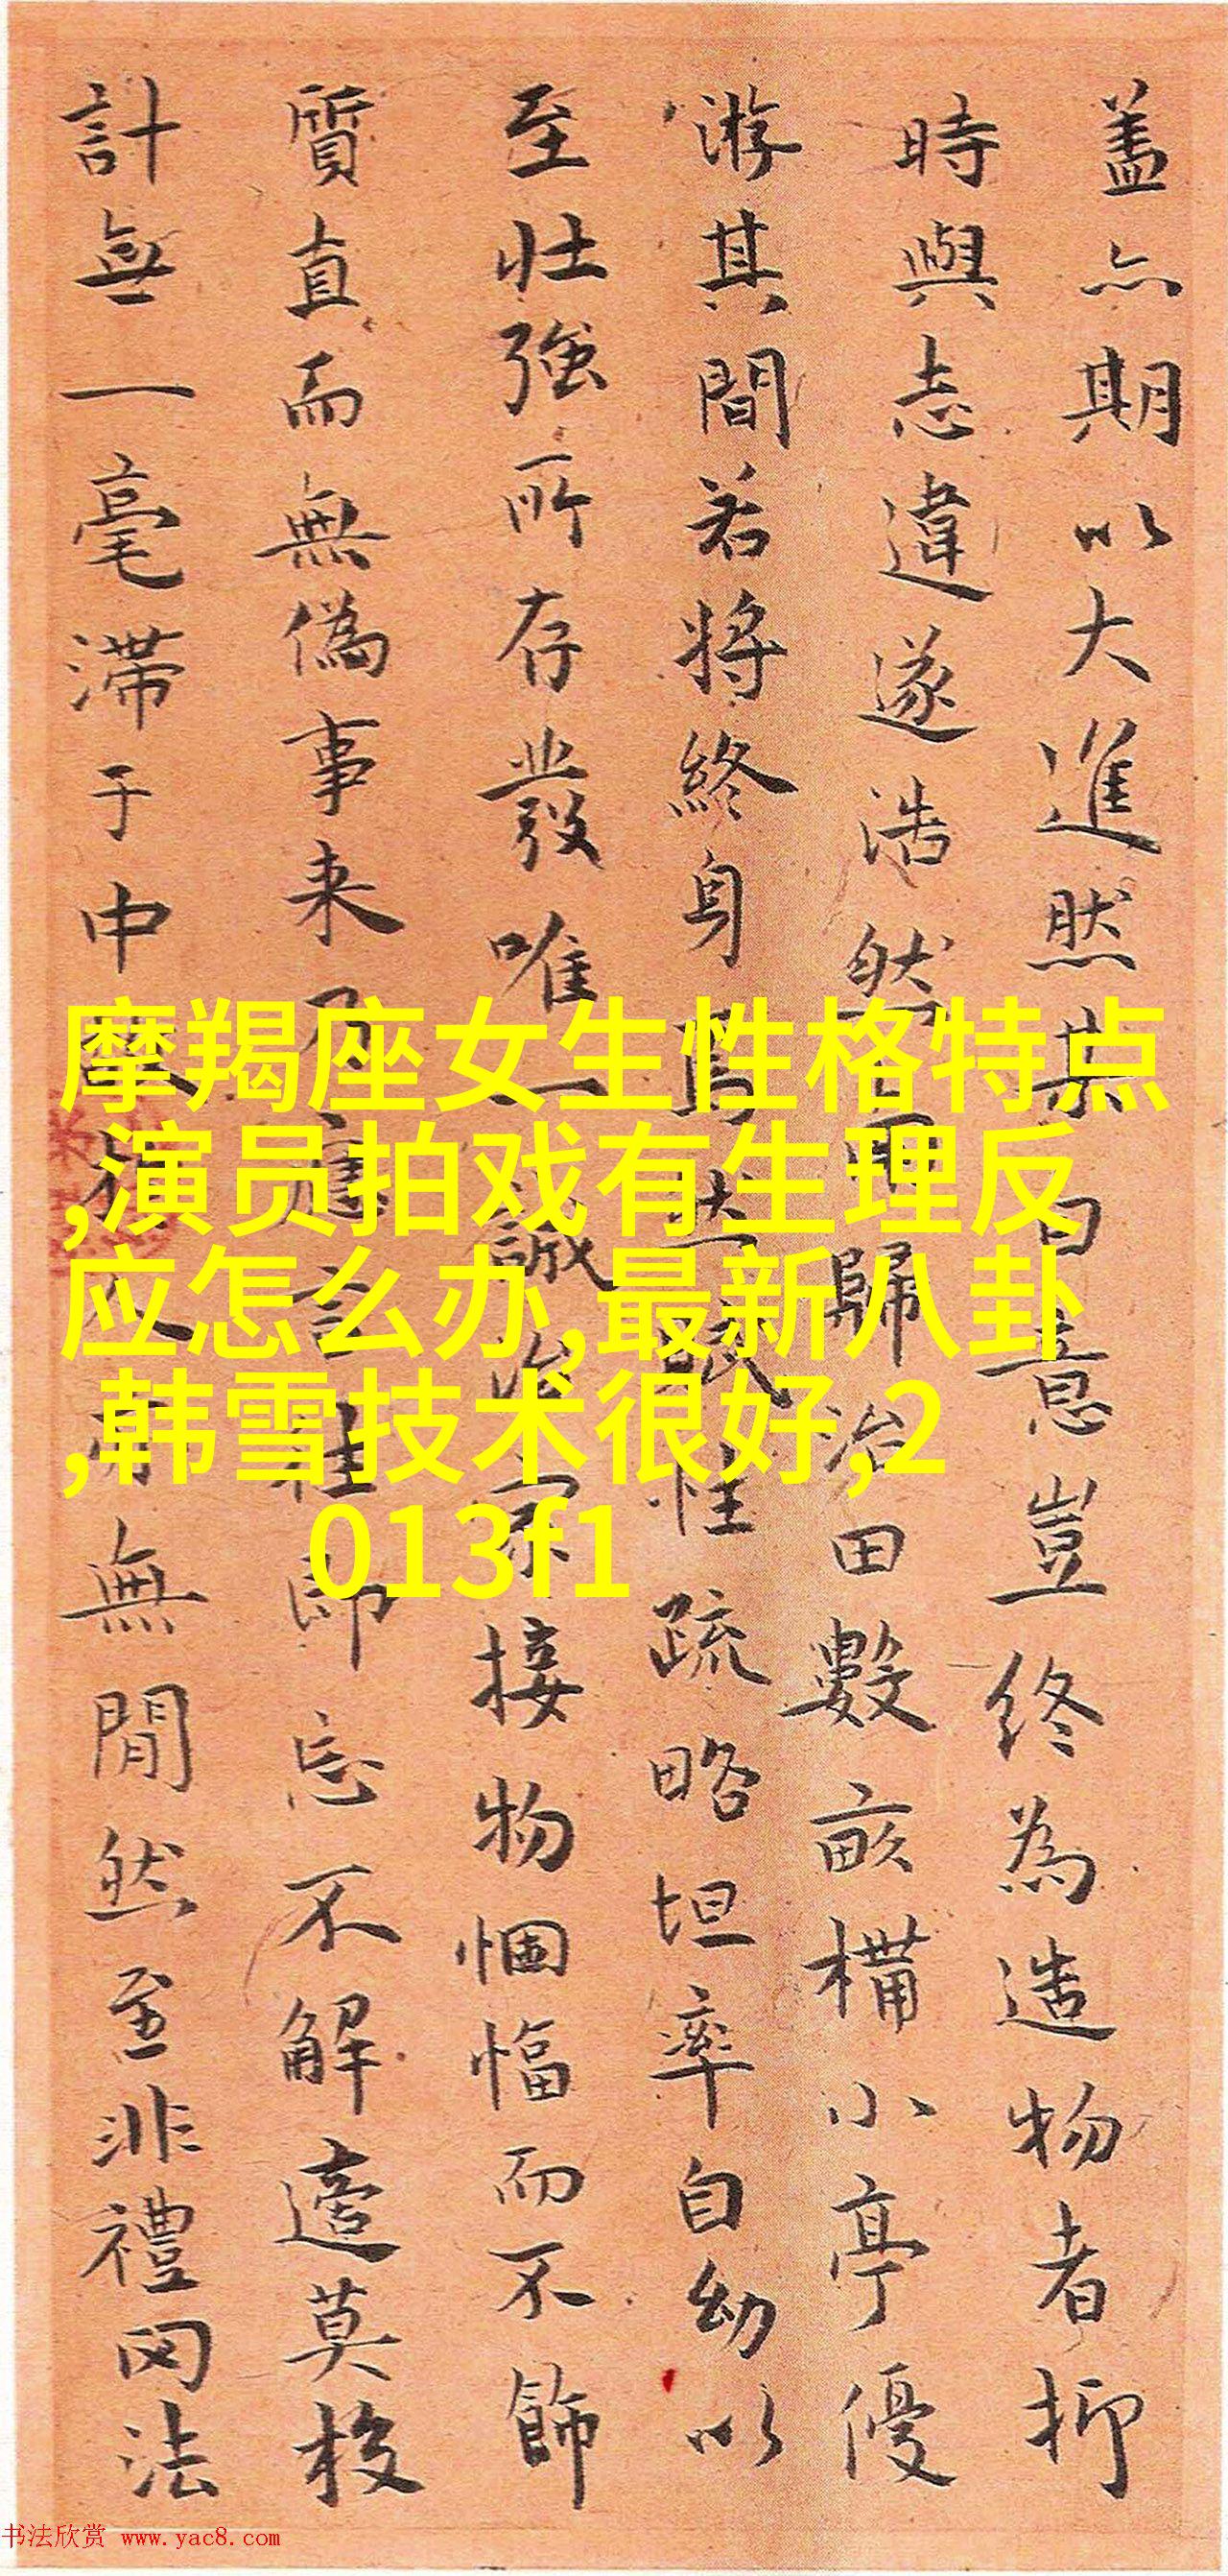 蓋亦期以大進然其自意豈終為造物者抑
時與志違遂浩然而歸治田數畝構小亭優
游其間若將終身焉然賦性疏略坦率自幼以
至壯強所存發唯一誠俟家接物悃愊而不飾
質直而無偽事来乃應言往即忘不解邊莫校
計無一毫滯于中無閒然至非禮罔法
摩羯座女生性格特点
,演员拍戏有生理反
应怎么办,最新八卦
,韩雪技术很好,2
013f1
书法欣赏 www.yac8.com